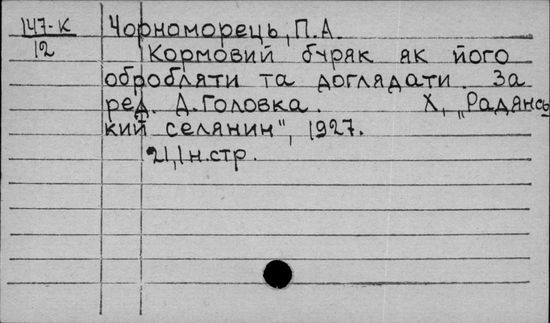 147-К Чорноморець, П.А.
12 Кормовий буряк як його
обробляти та доглядати. За
ред. Д.Головка. Х, „Радянсь
кий селянин", 1927.
21,1н.стр.